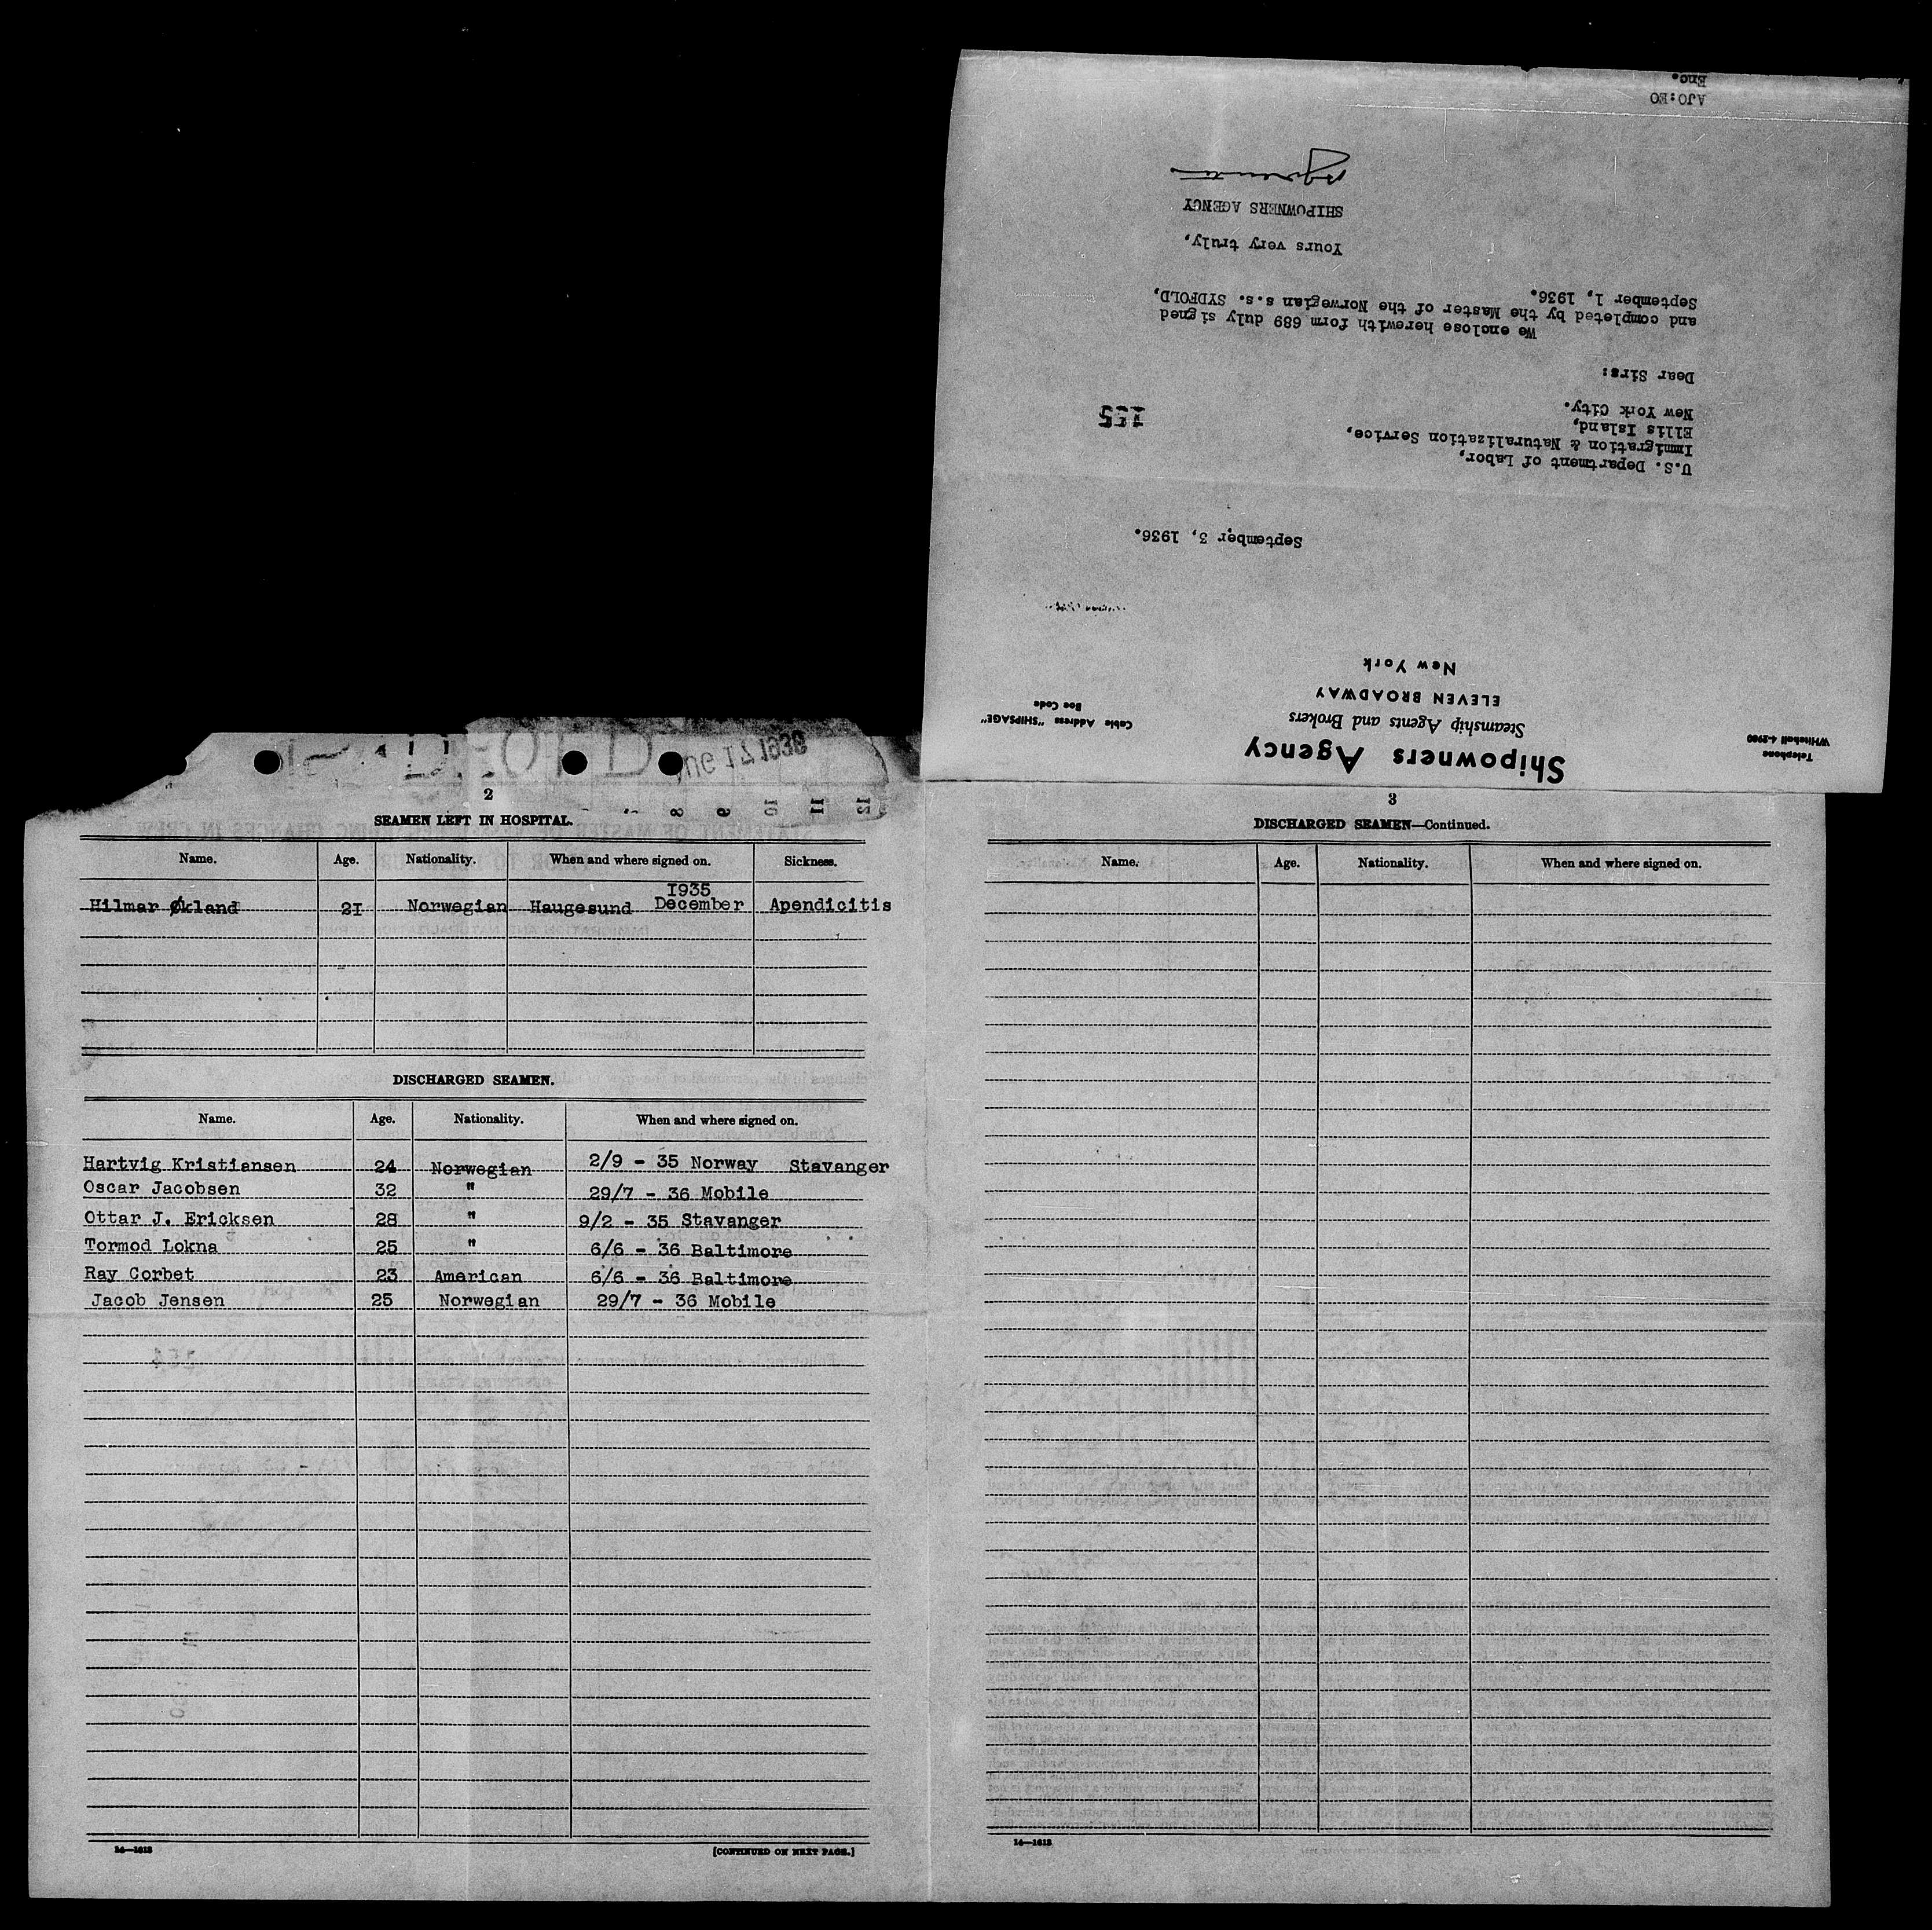 Shipowners Agency
Steamship Agents and Brokers
ELEVEN BROADWAY
New York
Telephone
WHitehall 4-2960
Cable Address "SHIPSAGE"
Boe Code
September 3, 1936.
U.S. Department of Labor,
Immigration & Naturalization Service,
Ellis Island,
New York City.
155
Dear Sirs:
We enclose herewith form 689 duly signed
and completed by the Master of the Norwegian s.s. SYDFOLD,
September 1, 1936.
Yours very truly,
SHIPOWNERS AGENCY
AJO:EO
Enc.
8 9 10 11 12
2
SEAMEN LEFT IN HOSPITAL.
Name. Age. Nationality. When and where signed on. Sickness.
1935
Hilmar Økland 21 Norwegian Haugesund December Apendicitis
DISCHARGED SEAMEN.
Name. Age. Nationality. When and where signed on.
Hartvig Kristiansen 24 Norwegian 2/9 - 35 Norway Stavanger
Oscar Jacobsen 32 " 29/7 - 36 Mobile
Ottar J. Ericksen 28 " 9/2 - 35 Stavanger
Tormod Lokna 25 " 6/6 - 36 Baltimore
Ray Corbet 23 American 6/6 - 36 Baltimore
Jacob Jensen 25 Norwegian 29/7 - 36 Mobile
14—1613
[CONTINUED ON NEXT PAGE.]
3
DISCHARGED SEAMEN—Continued.
Name. Age. Nationality. When and where signed on.
14—1613